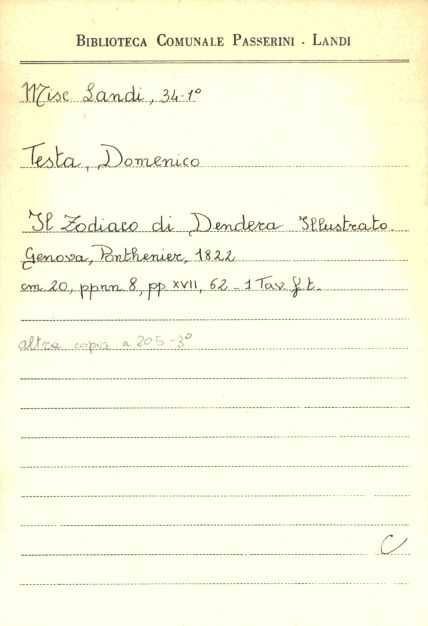 BIBLIOTECA COMUNALE PASSERINI - LANDI
Misc Landi, 34-1°
Testa, Domenico
Il Zodiaco di Dendera Illustrato.
Genova, Ponthenier, 1822
cm 20, ppnn 8, pp XVII, 62 - 1 Tav. f. t.
altra copia a 205-3°
C